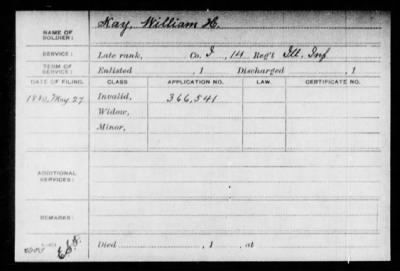 NAME OF SOLDIER: Kay, William H.
SERVICE: Late rank, Co. I, 14 Reg't Ill. Inf.
TERM OF SERVICE: Enlisted , 1 Discharged , 1
DATE OF FILING. CLASS. APPLICATION NO. LAW. CERTIFICATE NO.
1880, May 27 Invalid, 366,541
Widow,
Minor,
ADDITIONAL SERVICES:
REMARKS:
Died , 1 , at